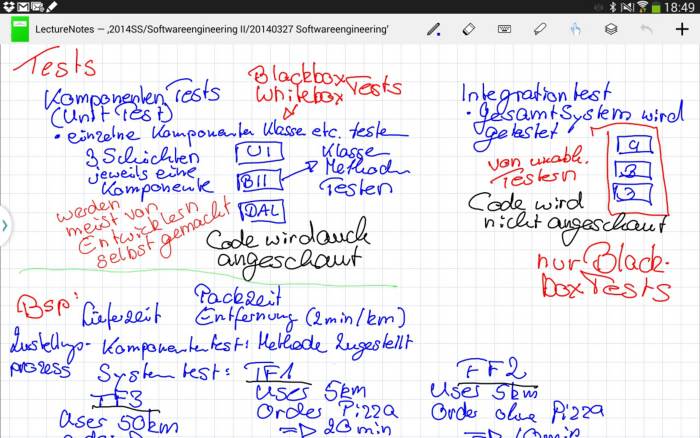 18:49
LectureNotes — ,2014SS/Softwareengineering II/20140327 Softwareengineering'
Tests
Komponenten Tests
(Unit Test)
Blackbox Tests
Whitebox
• einzelne Komponenten Klasse etc. testen
3 Schichten
jeweils eine
Komponente
UI
BII
DAL
Klasse
Methoden
Testen
werden
meist von
Entwicklern
selbst gemacht
Code wird auch
angeschaut
Integrationtest
• gesamt System wird
getestet
von unabh.
Testern
1
2
3
Code wird
nicht angeschaut
nur Black-
box Tests
Bsp:
Lieferzeit
Packzeit
Entfernung (2min/km)
Zustellungs-
prozess
Komponententest: Methode Zugestellt
Systemtest:
TF1
Uses 5km
Order Pizza
=> 20 min
TF2
Uses 5km
Order ohne Pizza
=> 10min
TF3
Uses 50km